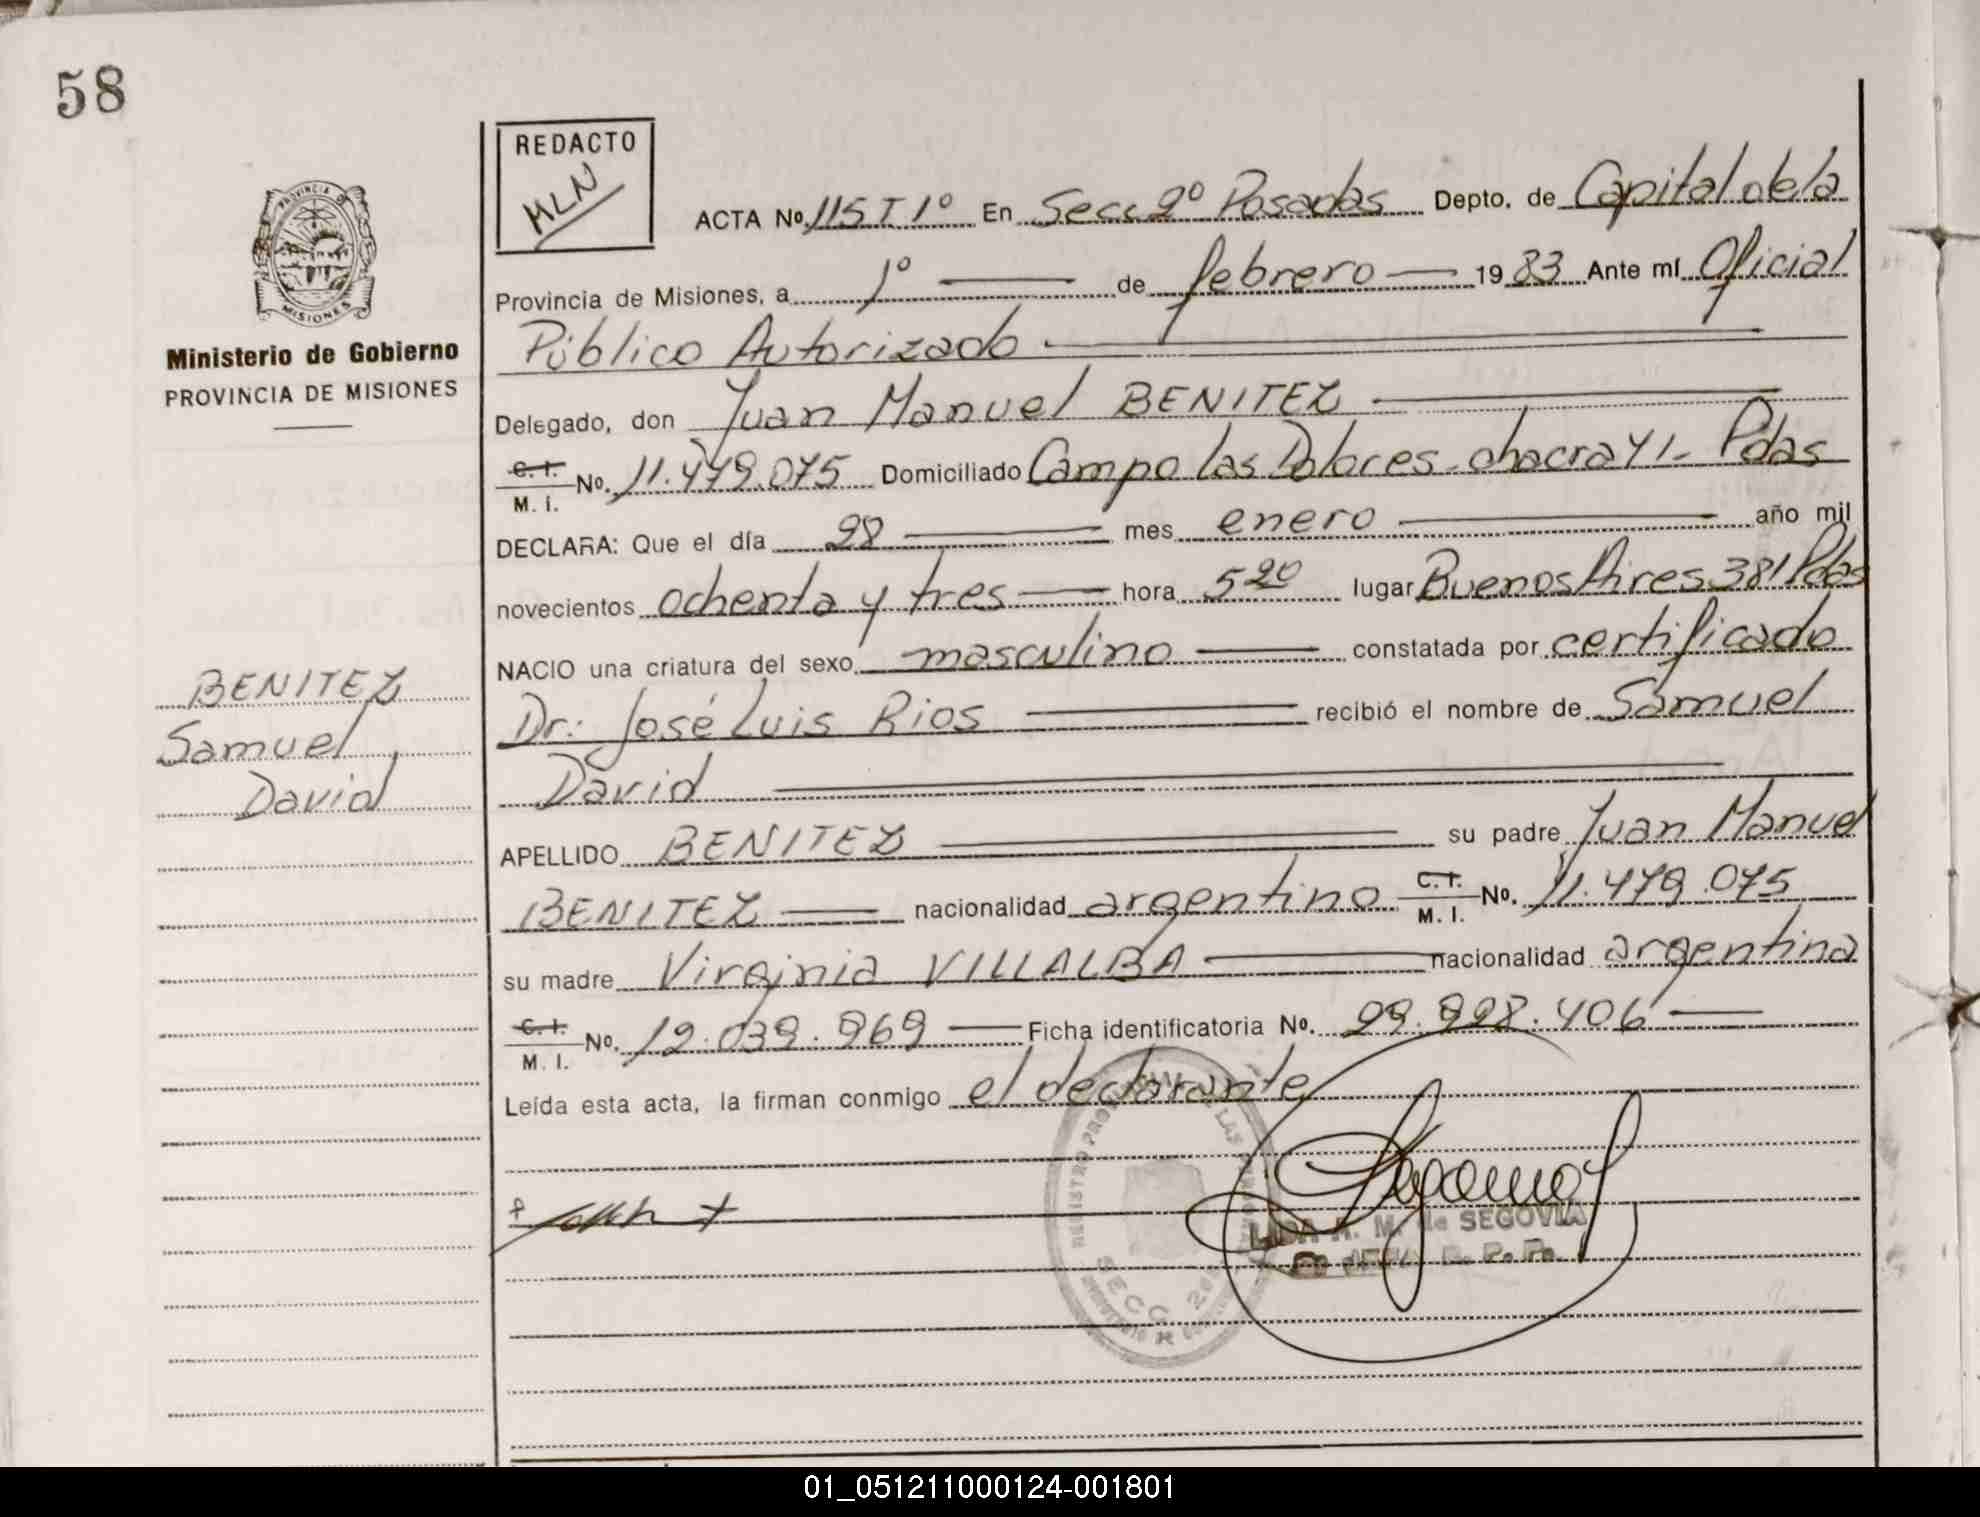 58
REDACTO
MLN
PROVINCIA DE
MISIONES
Ministerio de Gobierno
PROVINCIA DE MISIONES
BENITEZ
Samuel
David
ACTA No. 115 T 1º En Secc 2º Posadas Depto. de Capital de la
Provincia de Misiones, a 1º de febrero 1983 Ante mí Oficial
Público Autorizado
Delegado, don Juan Manuel BENITEZ
C.I. M.I. No. 11.479.075 Domiciliado Campo las Dolores - chacra 41 - Pdas
DECLARA: Que el día 28 mes enero año mil
novecientos ochenta y tres hora 5 20 lugar Buenos Aires 381 Pdas
NACIO una criatura del sexo masculino constatada por certificado
Dr: José Luis Rios recibió el nombre de Samuel
David
APELLIDO BENITEZ su padre Juan Manuel
BENITEZ nacionalidad argentino C.I. M.I. No. 11.479.075
su madre Virginia VILLALBA nacionalidad argentina
C.I. M.I. No. 12.039.969 Ficha identificatoria No. 29.998.406
Leída esta acta, la firman conmigo el declarante
REGISTRO DE LAS
SECC. 2da
M. de SEGOVIA
01_051211000124-001801